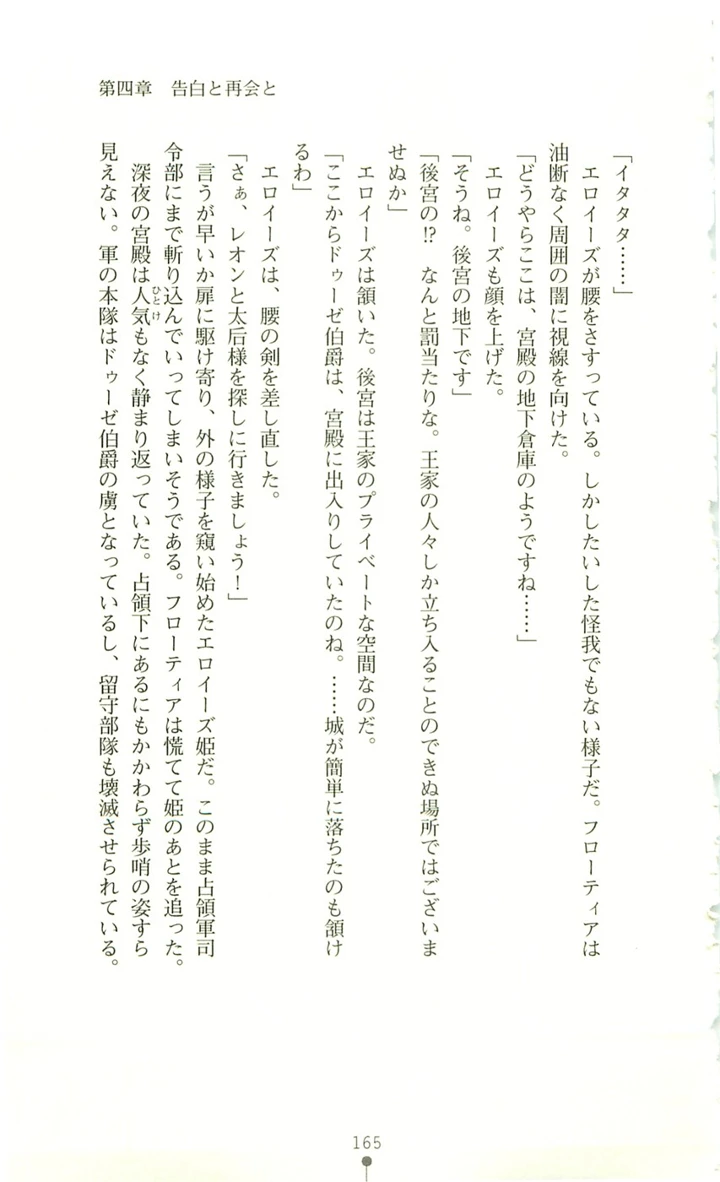 第四章　告白と再会と
「イタタタ……」
　エロイーズが腰をさすっている。しかしたいした怪我でもない様子だ。フローティアは
油断なく周囲の闇に視線を向けた。
「どうやらここは、宮殿の地下倉庫のようですね……」
　エロイーズも顔を上げた。
「そうね。後宮の地下です」
「後宮の!?　なんと罰当たりな。王家の人々しか立ち入ることのできぬ場所ではございま
せぬか」
　エロイーズは頷いた。後宮は王家のプライベートな空間なのだ。
「ここからドゥーゼ伯爵は、宮殿に出入りしていたのね。……城が簡単に落ちたのも頷け
るわ」
　エロイーズは、腰の剣を差し直した。
「さぁ、レオンと太后様を探しに行きましょう！」
　言うが早いか扉に駆け寄り、外の様子を窺い始めたエロイーズ姫だ。このまま占領軍司
令部にまで斬り込んでいってしまいそうである。フローティアは慌てて姫のあとを追った。
　深夜の宮殿は人気もなく静まり返っていた。占領下にあるにもかかわらず歩哨の姿すら
ひとけ
見えない。軍の本隊はドゥーゼ伯爵の虜となっているし、留守部隊も壊滅させられている。
165